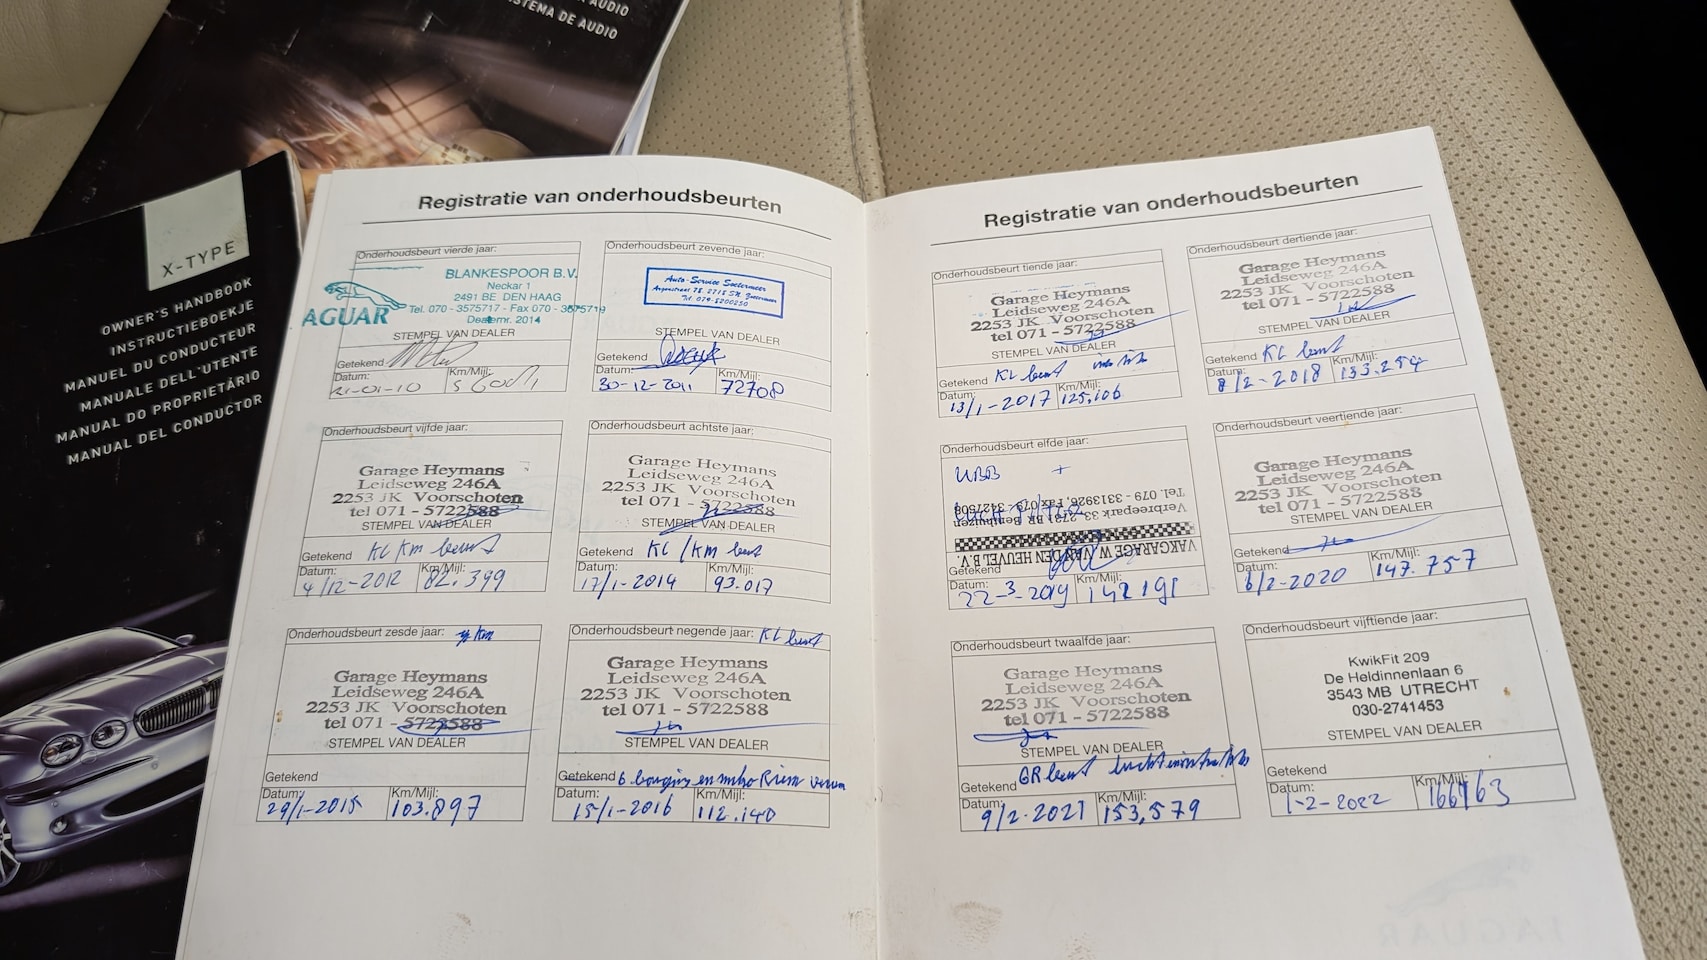 AUDIO
SISTEMA DE AUDIO
X-TYPE
OWNER'S HANDBOOK
INSTRUCTIEBOEKJE
MANUEL DU CONDUCTEUR
MANUALE DELL'UTENTE
MANUAL DO PROPRIETÁRIO
MANUAL DEL CONDUCTOR
Registratie van onderhoudsbeurten
Onderhoudsbeurt vierde jaar:
JAGUAR
BLANKESPOOR B.V.
Neckar 1
2491 BE DEN HAAG
Tel. 070 - 3575717 - Fax 070 - 3575719
Dealernr. 2014
STEMPEL VAN DEALER
Getekend
Datum: 21-01-10 Km/Mijl:
Onderhoudsbeurt vijfde jaar:
Garage Heymans
Leidseweg 246A
2253 JK Voorschoten
tel 071 - 5722588
STEMPEL VAN DEALER
Getekend KL Km beurt
Datum: 4/12-2012 Km/Mijl: 82.399
Onderhoudsbeurt zesde jaar: km
Garage Heymans
Leidseweg 246A
2253 JK Voorschoten
tel 071 - 5722588
STEMPEL VAN DEALER
Getekend
Datum: 29/1-2015 Km/Mijl: 103.897
Onderhoudsbeurt zevende jaar:
Auto-Service Soetermeer
STEMPEL VAN DEALER
Getekend
Datum: 30-12-2011 Km/Mijl: 72708
Onderhoudsbeurt achtste jaar:
Garage Heymans
Leidseweg 246A
2253 JK Voorschoten
tel 071 - 5722588
STEMPEL VAN DEALER
Getekend KL/Km beurt
Datum: 17/1-2014 Km/Mijl: 93.017
Onderhoudsbeurt negende jaar: KL beurt
Garage Heymans
Leidseweg 246A
2253 JK Voorschoten
tel 071 - 5722588
STEMPEL VAN DEALER
Getekend 6 bougies en Riem
Datum: 15/1-2016 Km/Mijl: 112.140
Registratie van onderhoudsbeurten
Onderhoudsbeurt tiende jaar:
Garage Heymans
Leidseweg 246A
2253 JK Voorschoten
tel 071 - 5722588
STEMPEL VAN DEALER
Getekend KL beurt
Datum: 13/1-2017 Km/Mijl: 125.106
Onderhoudsbeurt elfde jaar:
+
VAKGARAGE W. VAN DEN HEUVEL B.V.
Verbreepark 33, 2731 BR Benthuizen
Tel. 079 - 3313926, Fax 079 - 3427508
Getekend
Datum: 22-3-2019 Km/Mijl: 142191
Onderhoudsbeurt twaalfde jaar:
Garage Heymans
Leidseweg 246A
2253 JK Voorschoten
tel 071 - 5722588
STEMPEL VAN DEALER
Getekend GR beurt
Datum: 9/2-2021 Km/Mijl: 153,579
Onderhoudsbeurt dertiende jaar:
Garage Heymans
Leidseweg 246A
2253 JK Voorschoten
tel 071 - 5722588
STEMPEL VAN DEALER
Getekend KL beurt
Datum: 8/2-2018 Km/Mijl:
Onderhoudsbeurt veertiende jaar:
Garage Heymans
Leidseweg 246A
2253 JK Voorschoten
tel 071 - 5722588
STEMPEL VAN DEALER
Getekend
Datum: 6/2-2020 Km/Mijl: 147.757
Onderhoudsbeurt vijftiende jaar:
KwikFit 209
De Heldinnenlaan 6
3543 MB UTRECHT
030-2741453
STEMPEL VAN DEALER
Getekend
Datum: 1-2-2022 Km/Mijl: 166463
JAGUAR